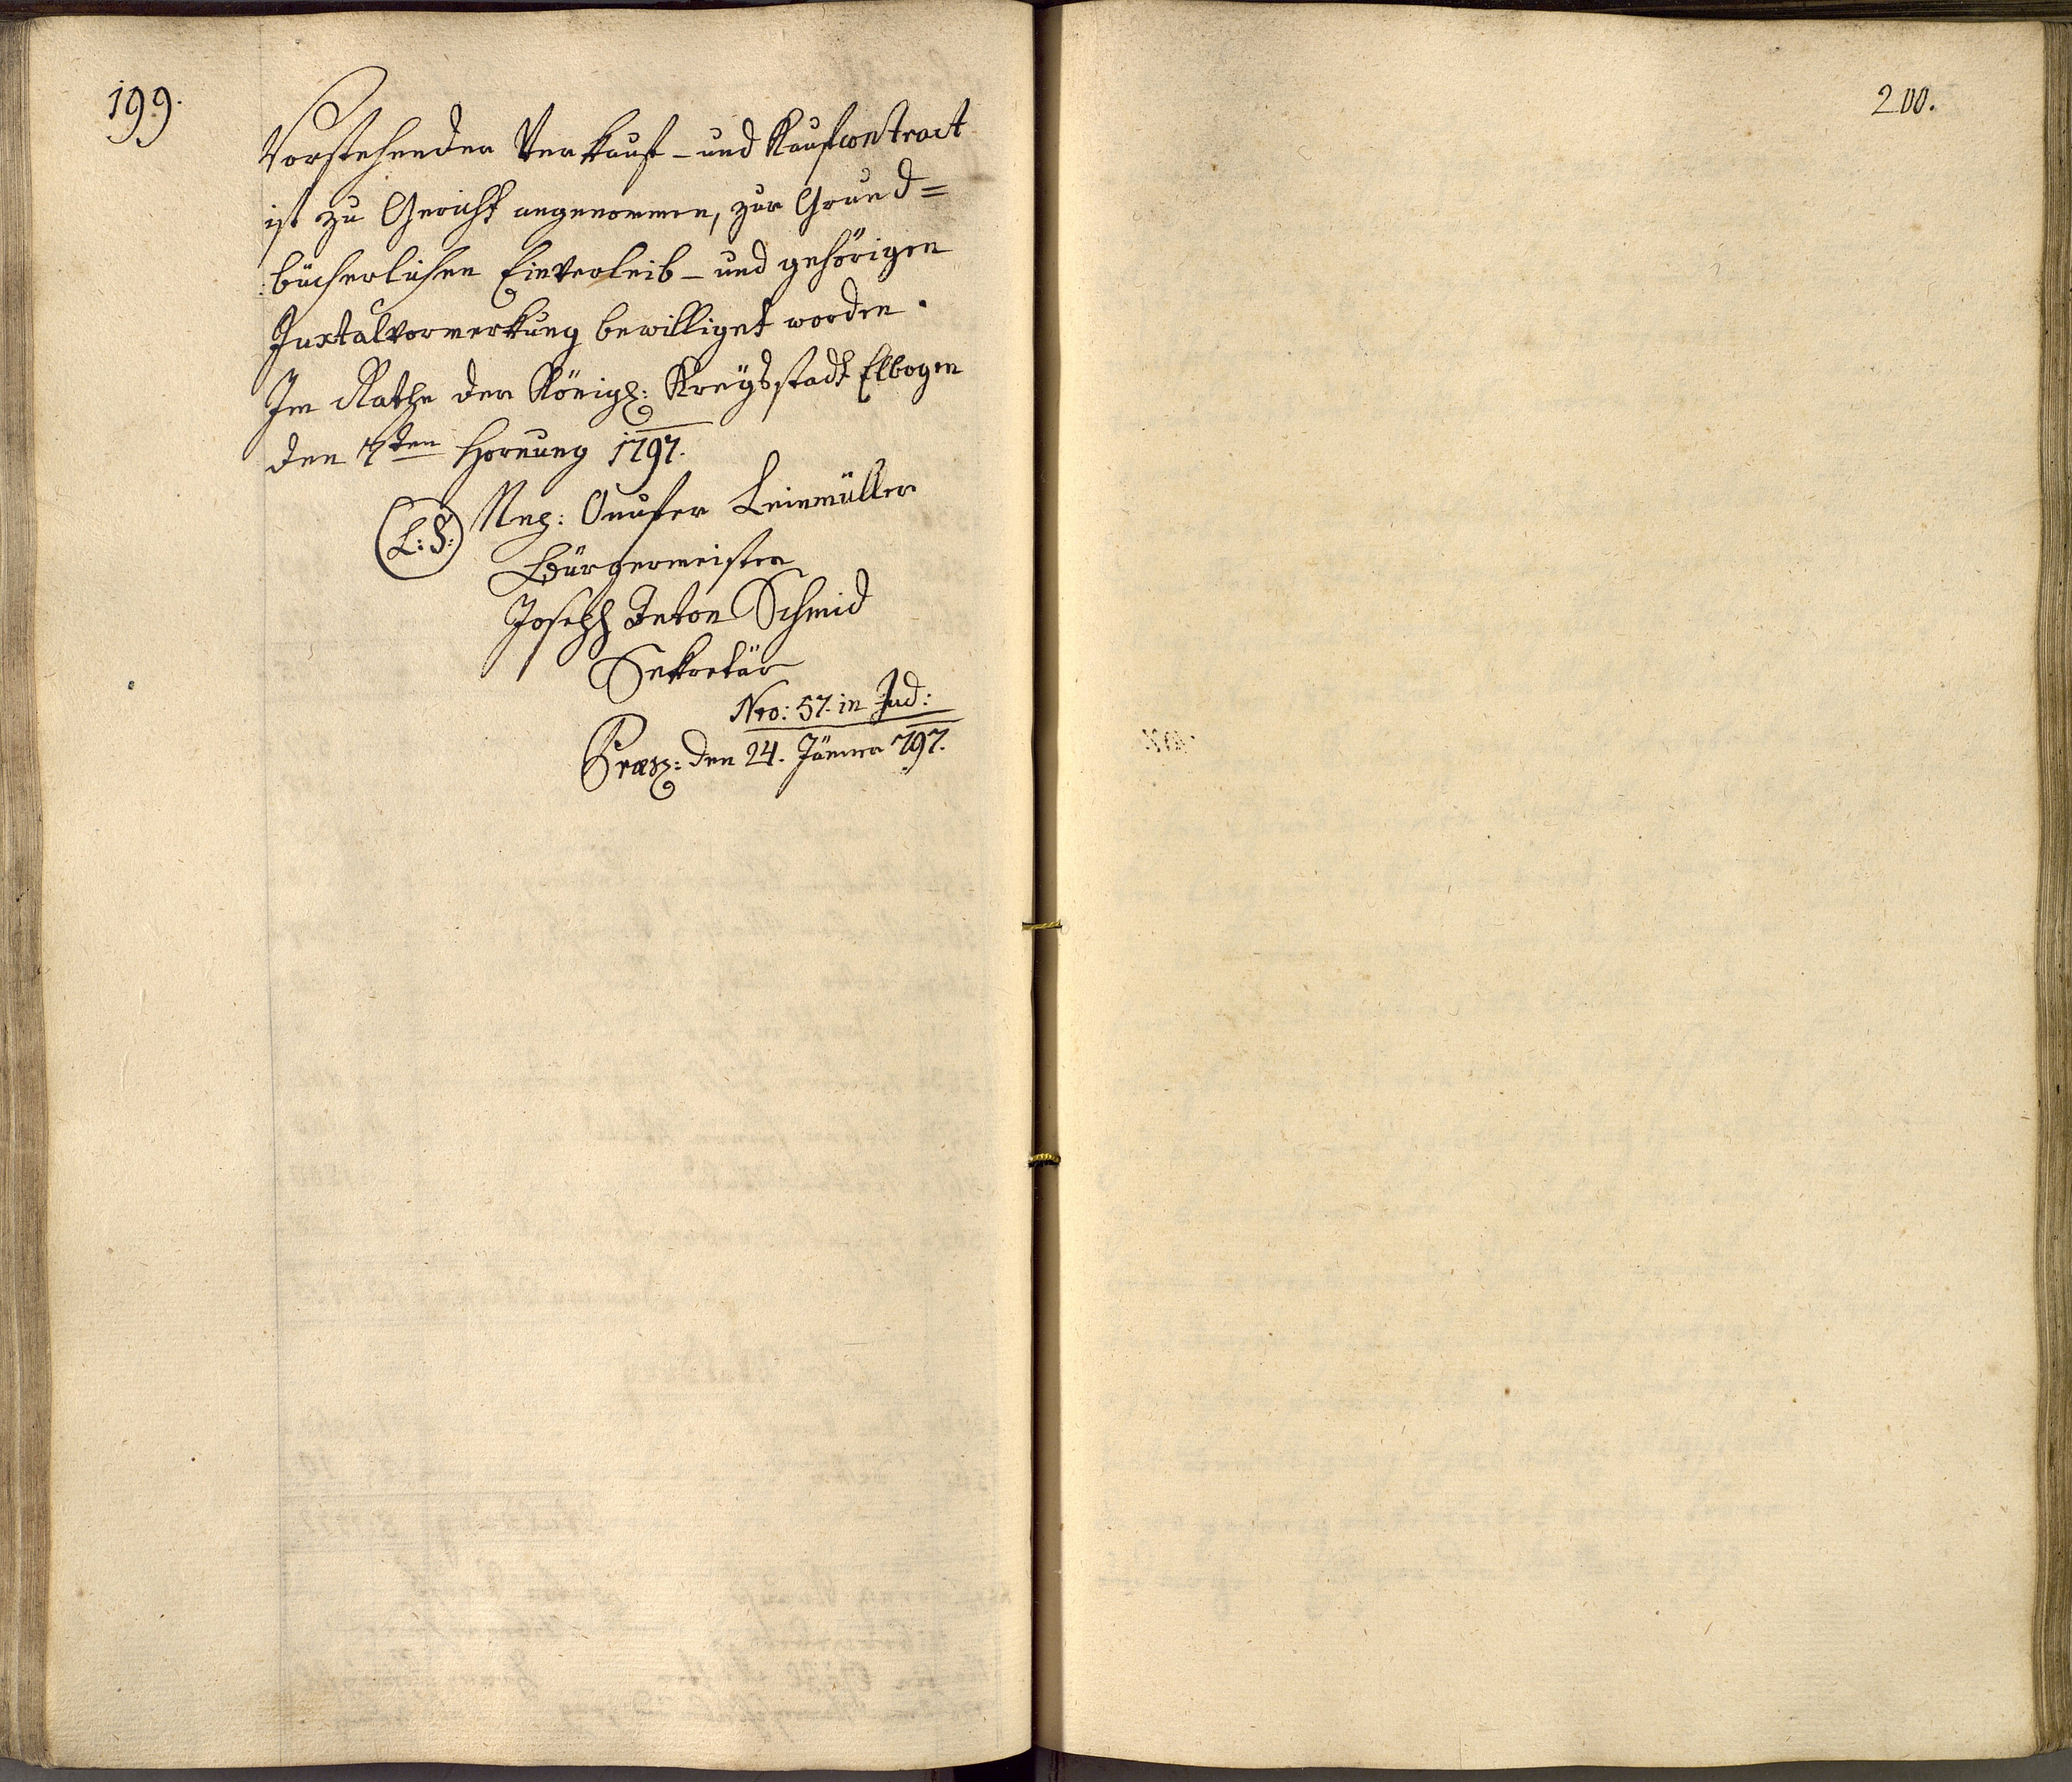 199.
Vorstehender Verkauf- und Kaufcontract
ist zu Gericht angenommen, zur Grund=
bücherlichen Einverleib- und gehörigen
Juxtalvormerkung bewilliget worden.
Im Rathe der Königl: Kreysstadt Elbogen
den 7ten Hornung 1797.
(L:S:) Onufer Leinmüller
Bürgermeister
Joseph Anton Schmid
Sekretär
Nro: 57. in Jud:
Præs: den 24. Jänner 797.
200.